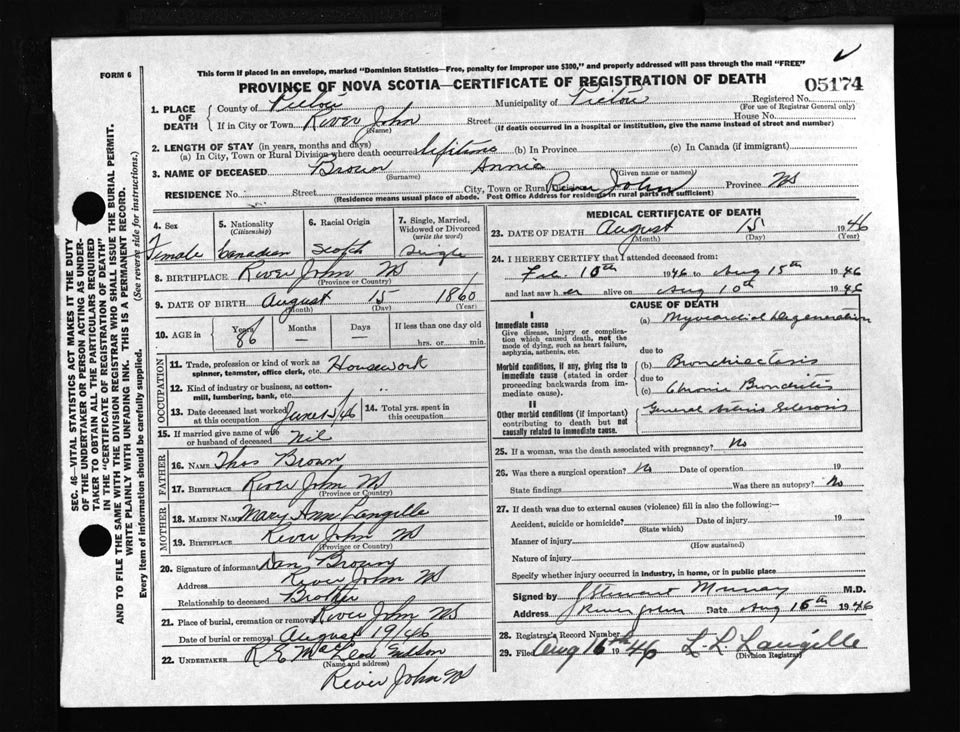 This form if placed in an envelope, marked "Dominion Statistics—Free, penalty for improper use $300," and properly addressed will pass through the mail "FREE"
FORM 6
PROVINCE OF NOVA SCOTIA—CERTIFICATE OF REGISTRATION OF DEATH
05174
1. PLACE OF DEATH
County of Pictou Municipality of Pictou Registered No.
(For use of Registrar General only)
If in City or Town River John Street House No.
(Name) (If death occurred in a hospital or institution, give the name instead of street and number)
2. LENGTH OF STAY (in years, months and days)
(a) In City, Town or Rural Division where death occurred lifetime (b) In Province (c) In Canada (if immigrant)
3. NAME OF DECEASED Brown Annie
(Surname) (Given name or names)
RESIDENCE No. Street City, Town or Rural River John Province NS
(Residence means usual place of abode. Post Office Address for residents in rural parts not sufficient)
4. Sex Female
5. Nationality (Citizenship) Canadian
6. Racial Origin Scotch
7. Single, Married, Widowed or Divorced (write the word) Single
8. BIRTHPLACE River John NS
(Province or Country)
9. DATE OF BIRTH August 15 1860
(Month) (Day) (Year)
10. AGE in Years Months Days If less than one day old
86 — — hrs. or min.
OCCUPATION
11. Trade, profession or kind of work as spinner, teamster, office clerk, etc. Housework
12. Kind of industry or business, as cotton-mill, lumbering, bank, etc. "
13. Date deceased last worked at this occupation June /46
14. Total yrs. spent in this occupation
15. If married give name of wife or husband of deceased Nil
FATHER
16. NAME Thos Brown
17. Birthplace River John NS
(Province or Country)
MOTHER
18. MAIDEN NAME Mary Ann Langille
19. Birthplace River John NS
(Province or Country)
20. Signature of informant Dan Brown
Address River John NS
Relationship to deceased Brother
21. Place of burial, cremation or removal River John NS
Date of burial or removal August 19/46
22. UNDERTAKER R E MacLeod
(Name and address)
River John NS
MEDICAL CERTIFICATE OF DEATH
23. DATE OF DEATH August 15 1946
(Month) (Day) (Year)
24. I HEREBY CERTIFY that I attended deceased from:
Feb. 10th 1946 to Aug 15th 1946
and last saw her alive on Aug 10th 1946
CAUSE OF DEATH
I
Immediate cause
Give disease, injury or complication which caused death, not the mode of dying, such as heart failure, asphyxia, asthenia, etc.
(a) Myocardial Degeneration
due to
Morbid conditions, if any, giving rise to immediate cause (stated in order proceeding backwards from immediate cause).
(b) Bronchiectasis
due to
(c) Chronic Bronchitis
II
Other morbid conditions (if important) contributing to death but not causally related to immediate cause.
General Arterio Sclerosis
25. If a woman, was the death associated with pregnancy? No
26. Was there a surgical operation? No Date of operation 19
State findings Was there an autopsy? No
27. If death was due to external causes (violence) fill in also the following:—
Accident, suicide or homicide? Date of injury 19
(State which)
Manner of injury
(How sustained)
Nature of injury
Specify whether injury occurred in industry, in home, or in public place
Signed by J Stewart Murray M.D.
Address River John Date Aug 16th 1946
28. Registrar's Record Number
29. Filed Aug 16th 1946 L. L. Langille
(Division Registrar)
SEC. 46—VITAL STATISTICS ACT MAKES IT THE DUTY
OF THE UNDERTAKER OR PERSON ACTING AS UNDER-
TAKER TO OBTAIN ALL THE PARTICULARS REQUIRED
IN THE "CERTIFICATE OF REGISTRATION OF DEATH"
AND TO FILE THE SAME WITH THE DIVISION REGISTRAR WHO SHALL ISSUE THE BURIAL PERMIT.
WRITE PLAINLY WITH UNFADING INK. THIS IS A PERMANENT RECORD.
Every item of information should be carefully supplied. (See reverse side for instructions.)